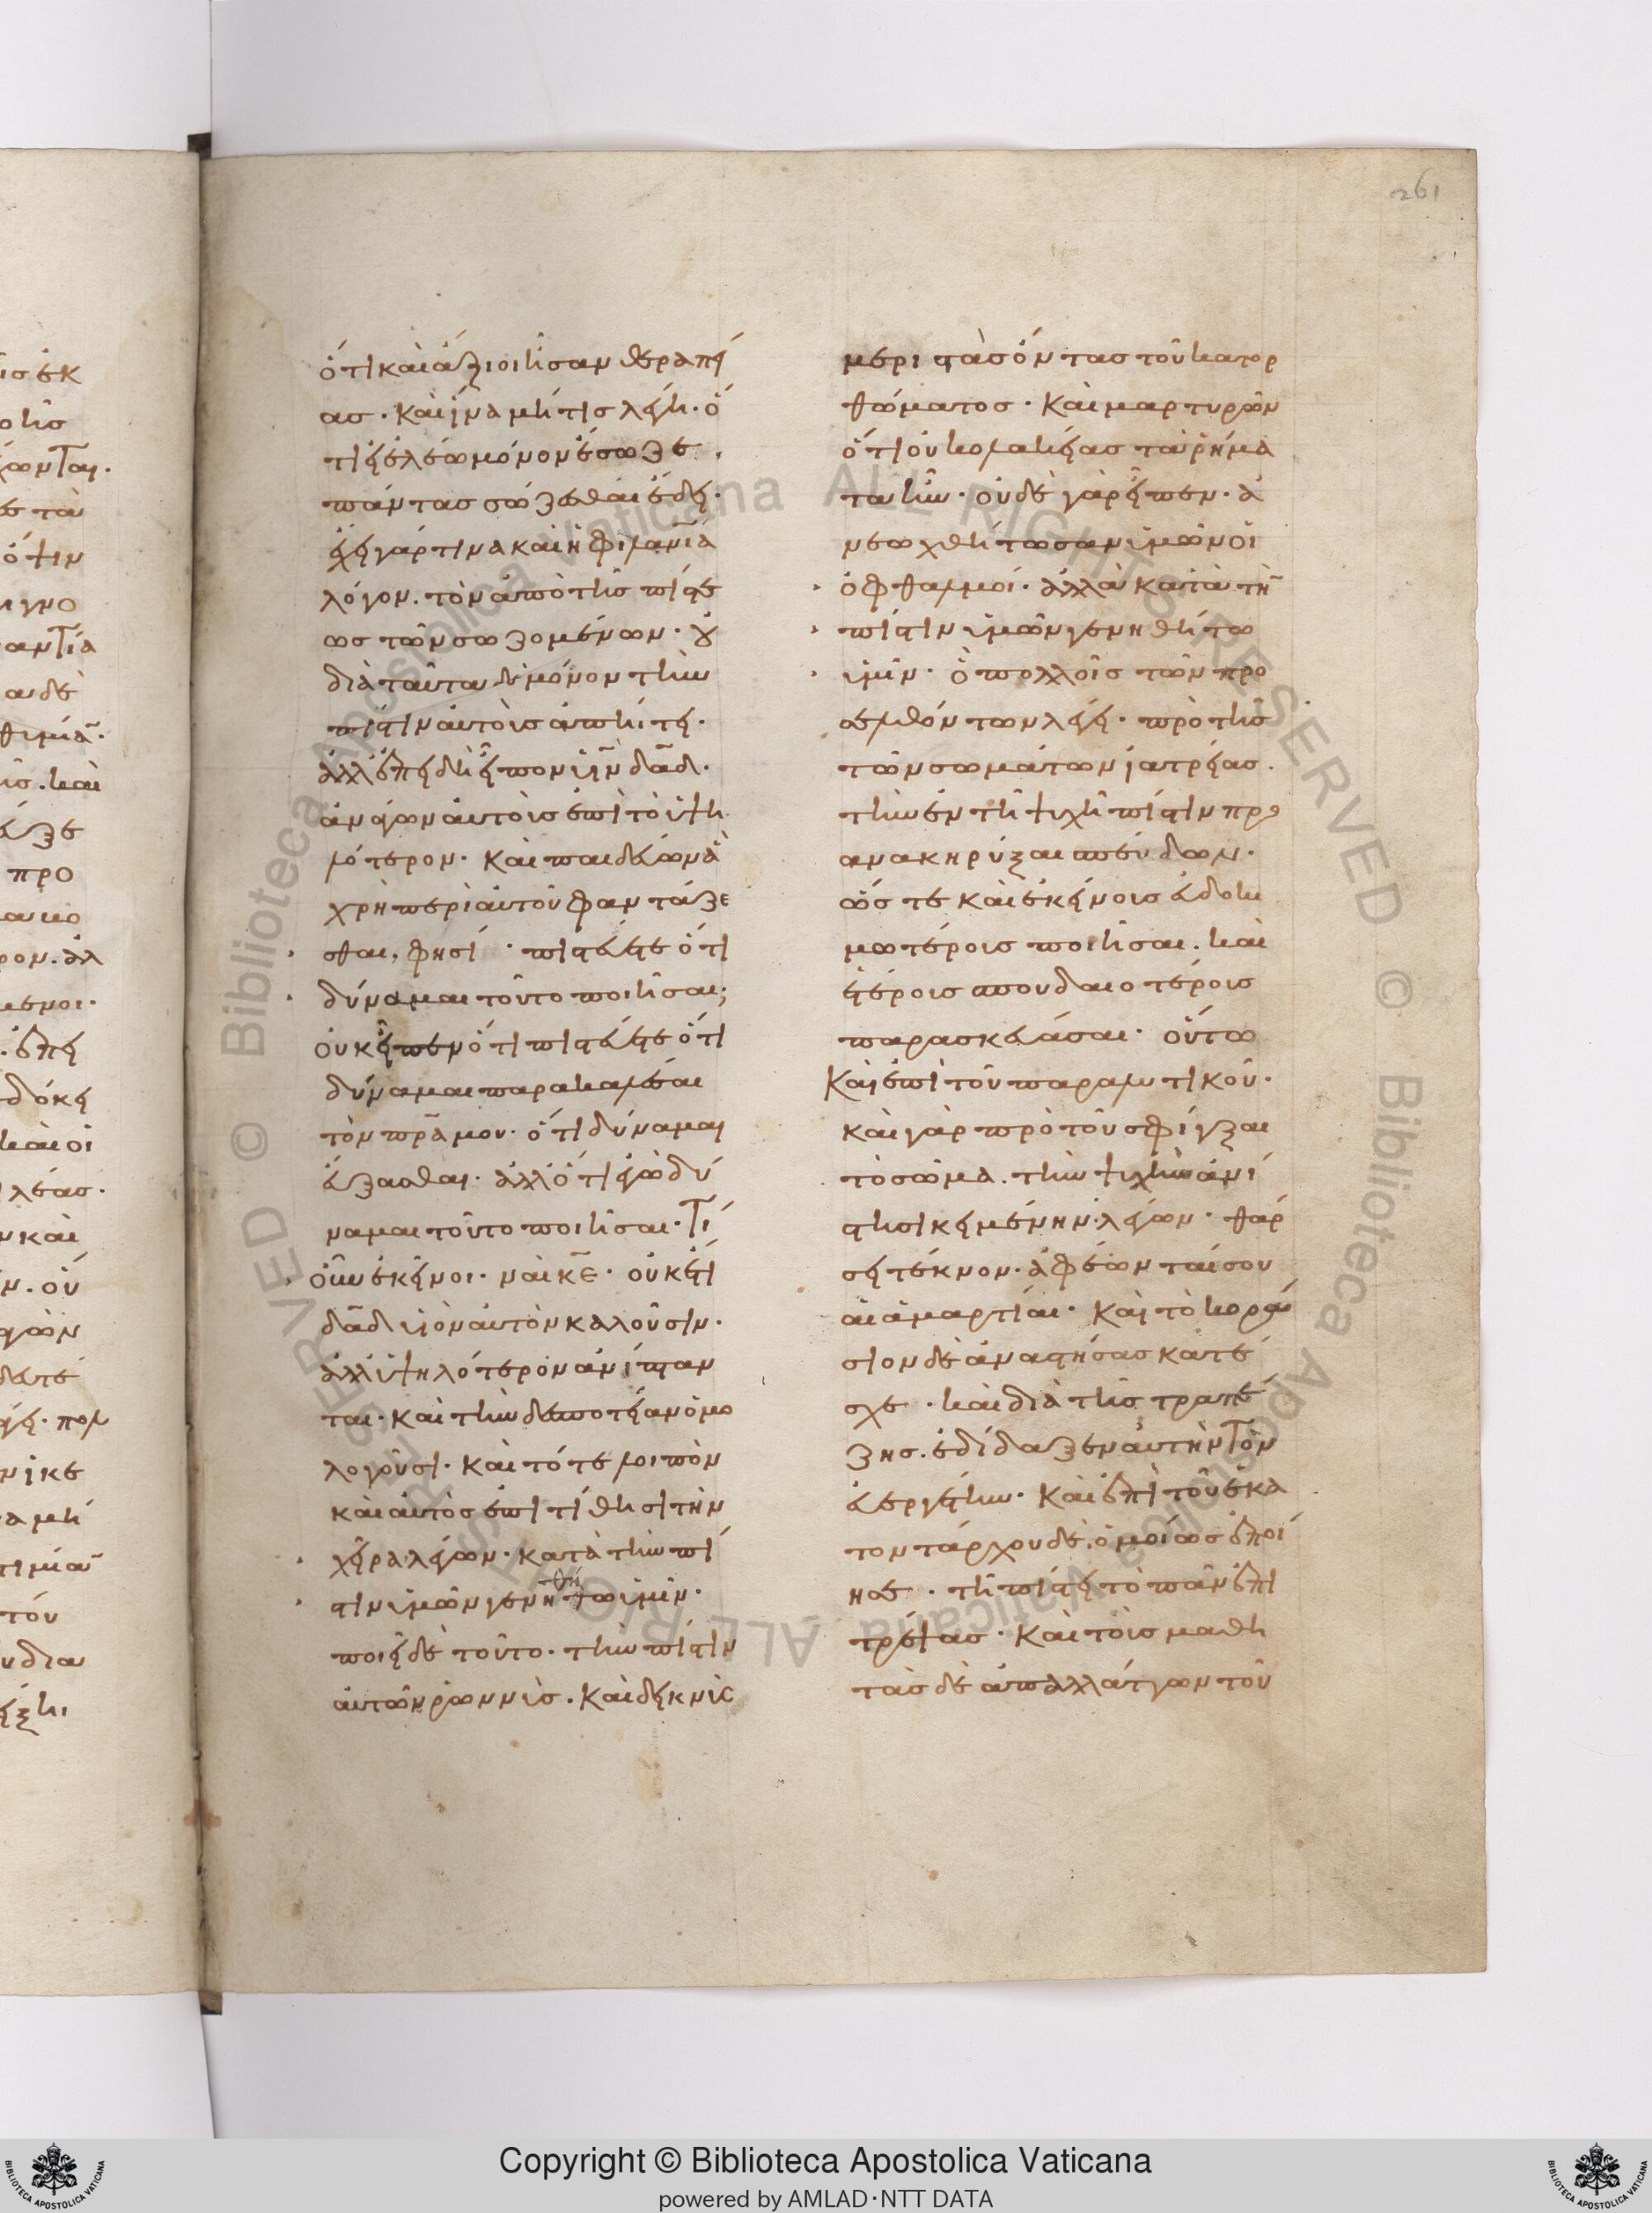 261
ὅτι καὶ ἄξιοι ἦσαν θεραπεί
ας. καὶ ἵνα μή τις λέγη. ὅ
τι εἰ ἐλέω μόνον ἔσωζε,
πάντας σώζεσθαι ἔδει.
ἔχει γάρ τινα καὶ ἡ φιλανία
λόγον. τὸν ἀπὸ τῆς πίστε
ως τῶν σωζομένων. οὐ
διὰ ταῦτα δὲ μόνον τὴν
πίστιν αὐτοὺς ἀπήτει.
ἀλλ' ἐπειδὴ εἶπον υἱὸν δαδ.
ἀνάγων αὐτοὺς ἐπὶ τὸ ὑψη
λότερον. καὶ παιδεύων ἃ
χρὴ περὶ αὐτοῦ φαντάζε
σθαι, φησί. πιστεύετε ὅτι
δύναμαι τοῦτο ποιῆσαι;
οὐκ εἶπεν ὅτι πιστεύετε ὅτι
δύναμαι παρακαλέσαι
τὸν πρα μου. ὅτι δύναμαι
εὔξασθαι. ἀλλ' ὅτι ἐγὼ δύ
ναμαι τοῦτο ποιῆσαι. Τί
οὖν ἐκεῖνοι. ναὶ κε. οὐκέτι
δαδ υἱὸν αὐτὸν καλοῦσιν.
ἀλλ' ὑψηλότερον ἀνίπταν
ται. καὶ τὴν δεσποτείαν ὁμο
λογοῦσι. καὶ τότε λοιπὸν
καὶ αὐτὸς ἐπιτίθησι τὴν
χεῖρα λέγων. κατὰ τὴν πί
στιν ὑμῶν γενηθήτω ὑμῖν.
ποιεῖ δὲ τοῦτο. τὴν πίστιν
αὐτῶν ῥωννύς. καὶ δεικνὺς
μεριστὰς ὄντας τοῦ κατορ
θώματος. καὶ μαρτυρῶν
ὅτι οὐ κολακείας τὰ ῥήμα
τα ἦν. οὐδὲ γὰρ εἶπεν. ἀ
νεωχθήτωσαν ὑμῶν οἱ
ὀφθαλμοί. ἀλλὰ κατὰ τὴν
πίστιν ὑμῶν γενηθήτω
ὑμῖν. ὃ πολλοῖς τῶν προ
σελθόντων λέγει. πρὸ τῆς
τῶν σωμάτων ἰατρείας.
τὴν ἐν τῇ ψυχῇ πίστιν προ
ανακηρύξαι σπεύδων.
ὥστε καὶ ἐκείνους εὐδοκι
μωτέρους ποιῆσαι. καὶ
ἑτέρους σπουδαιοτέρους
παρασκευάσαι. οὕτω
καὶ ἐπὶ τοῦ παραλυτικοῦ.
καὶ γὰρ πρὸ τοῦ σφίγξαι
τὸ σῶμα. τὴν ψυχὴν ἀνί
στησι κειμένην. λέγων. θάρ
σει τέκνον. ἀφέωνταί σου
αἱ ἁμαρτίαι. καὶ τὸ κορά
σιον δὲ ἀναστήσας κατέ
σχε. καὶ διὰ τῆς τραπέ
ζης. ἐδίδαξεν αὐτὴν Τὸν
εὐεργέτην. καὶ ἐπὶ τοῦ ἑκα
τοντάρχου δὲ, ὁμοίως ἐποί
ησε. τῇ πίστει τὸ πᾶν ἐπι
τρέψας. καὶ τοὺς μαθη
τὰς δὲ ἀπαλλάττων τοῦ
Copyright © Biblioteca Apostolica Vaticana
powered by AMLAD·NTT DATA